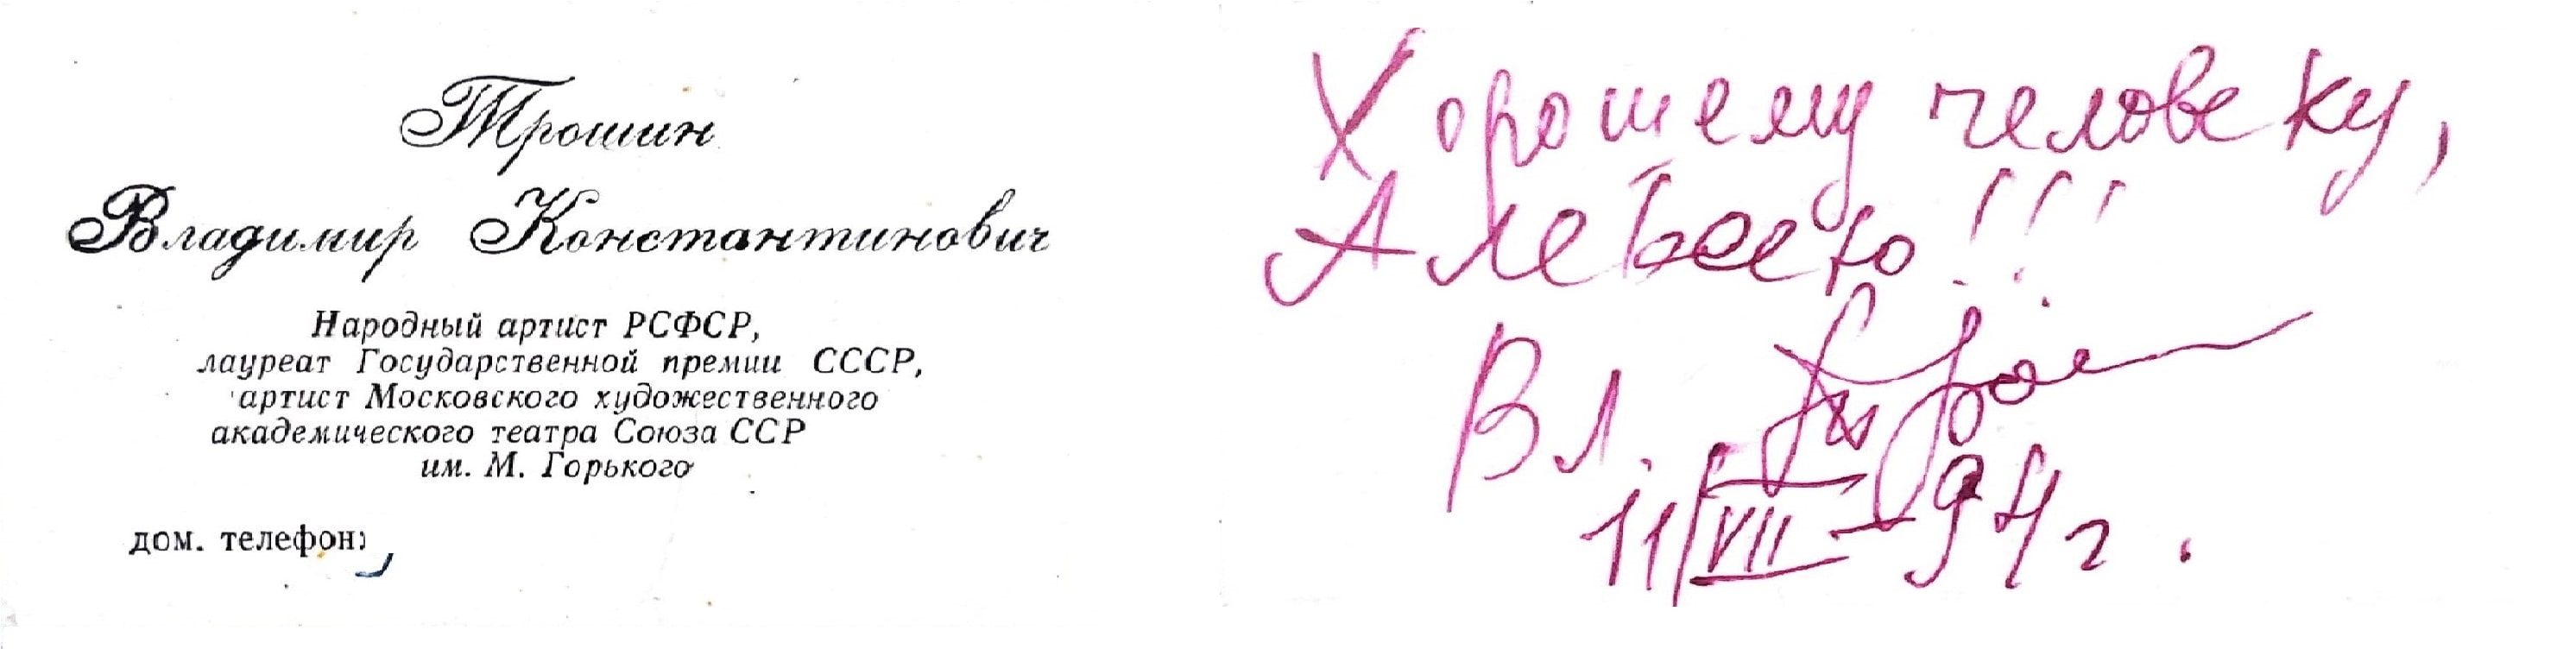 Трошин
Владимир Константинович
Народный артист РСФСР,
лауреат Государственной премии СССР,
артист Московского художественного
академического театра Союза ССР
им. М. Горького
дом. телефон:
Хорошему человеку,
Алексею!!!
Вл.
11/VII-94г.